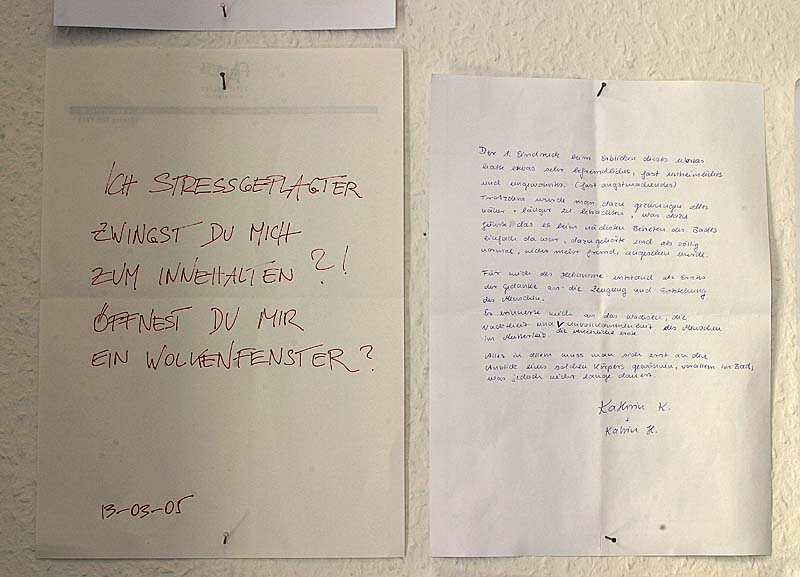 ICH STRESSGEPLAGTER
ZWINGST DU MICH
ZUM INNEHALTEN ?!
ÖFFNEST DU MIR
EIN WOLKENFENSTER?
13-03-05
Der 1. Eindruck beim Erblicken dieses Werkes
hatte etwas sehr befremdliches, fast unheimliches
und ungewohntes. (fast angstmachendes)
Trotzdem wurde man dazu gezwungen alles
näher + länger zu betrachten, was dazu
führte, das es beim nächsten Betreten des Bades
einfach da war, dazugehörte und als völlig
normal, nicht mehr fremd, angesehen wurde.
Für mich als Hebamme entstand als Erstes
der Gedanke an die Zeugung und Entstehung
des Menschen.
Es erinnerte mich an das Wachsen, die
Nacktheit und Unvollkommenheit des Menschen
im Mutterleib. die
Alles in allem muss man sich erst an den
Anblick eines solchen Körpers gewöhnen, vorallem im Bad,
was jedoch nicht lange dauert.
Kathrin K.
+
Katrin H.